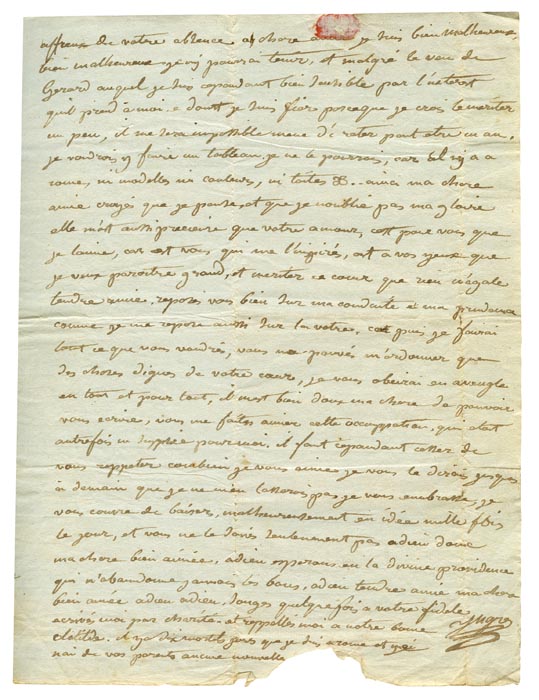 affreux de votre absence a chere amie je suis bien malheureux,
bien malheureux je n'y pourrai tenir, et malgré le voeu de
Gerard auquel je suis cependant bien sensible par l'interest
qu'il prend a moi, e dont je suis fiere porceque je crois le meriter
un peu, il me sera impossible meme d'i rester peut etre un an,
je voudrois y faire un tableau, je ne le pourrois, car il n'y a a
rome, ni modelles ni couleurs, ni toiles &.. ainsi ma chere
amie croyés que je pense, et que je n'oublie pas ma gloire
elle m'est aussi precieuse que votre amour, c'est pour vous que
je l'aime, car c'est vous qui me l'inspirés, c'est a vos yeux que
je veux paroitre grand, et meriter ce coeur que rien n'égale
tendre amie, reposés vous bien sur ma conduite e ma prudence
comme je me repose aussi sur la votre, et puis je fairai
tout ce que vous voudrés, vous ne pouvés m'ordonner que
des choses dignes de votre coeur, je vous obeirai en aveugle
en tout et pour tout, il m'est bien doux ma chere de pouvoir
vous ecrire, vous me faites aimer cette occuppation, qui etait
autrefois un suplice pour moi. il faut cependant cesser de
vous reppeter combien je vous aime je vous le dirois jusques
a demain que je ne m'en lasserois pas, je vous embrasse, je
vous couvre de baiser, malheureusement en idée mille fois
le jour, et vous ne le savés seulement pas adieu donc
ma chere bien aimée, adieu esperons en la divine providence
qui n'abandonne jamais les bons, adieu tendre amie ma chere
bien aimée adieu adieu, songés quelque fois a votre fidele
ecrivés moi par charité. et rappelles moi a notre bonne Ingres
clotilde. il y a dix mortels jours que je suis a rome et je
n'ai de vos parents aucune nouvelles